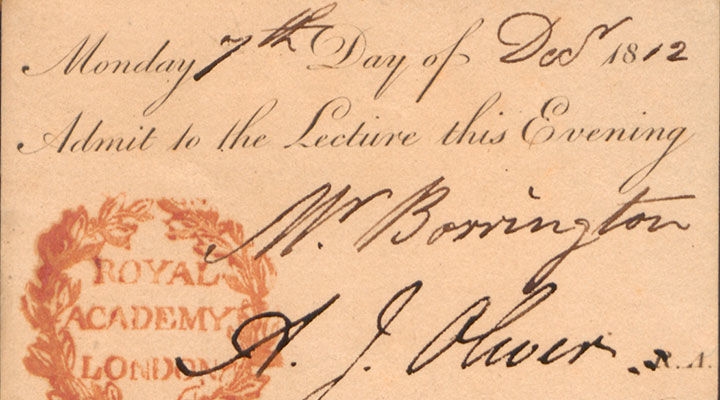 Monday 7th Day of Decr 1812
Admit to the Lecture this Evening
Mr. Borrington
ROYAL
ACADEMY
LONDON
A. J. Oliver. R.A.